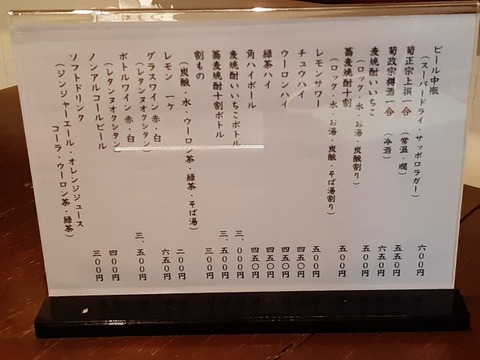 ビール中瓶 六〇〇円
(スーパードライ・サッポロラガー)
菊正宗上撰一合 (常温・燗) 五五〇円
菊政宗樽酒一合 (冷酒) 六五〇円
麦焼酎いいちこ 五〇〇円
(ロック・水・お湯・炭酸割り)
蕎麦焼酎十割 五〇〇円
(ロック・水・お湯・炭酸・そば湯割り)
レモンサワー 五〇〇円
チュウハイ 四五〇円
ウーロンハイ 四五〇円
緑茶ハイ 四五〇円
角ハイボール 四五〇円
麦焼酎いいちこボトル 三、〇〇〇円
蕎麦焼酎十割ボトル 三、五〇〇円
割もの 三〇〇円
(炭酸・水・ウーロン茶・緑茶・そば湯)
レモン 一ヶ 二〇〇円
グラスワイン 赤・白 六五〇円
(レタンヌオクシタン)
ボトルワイン 赤・白 三、五〇〇円
(レタンヌオクシタン)
ノンアルコールビール 四〇〇円
ソフトドリンク 三〇〇円
(ジンジャーエール・オレンジジュース
コーラ・ウーロン茶・緑茶)